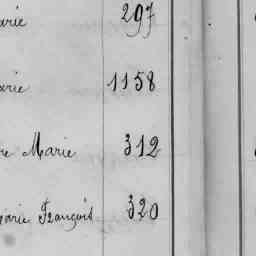 arie 297
arie 1158
re Marie 312
arie François 320